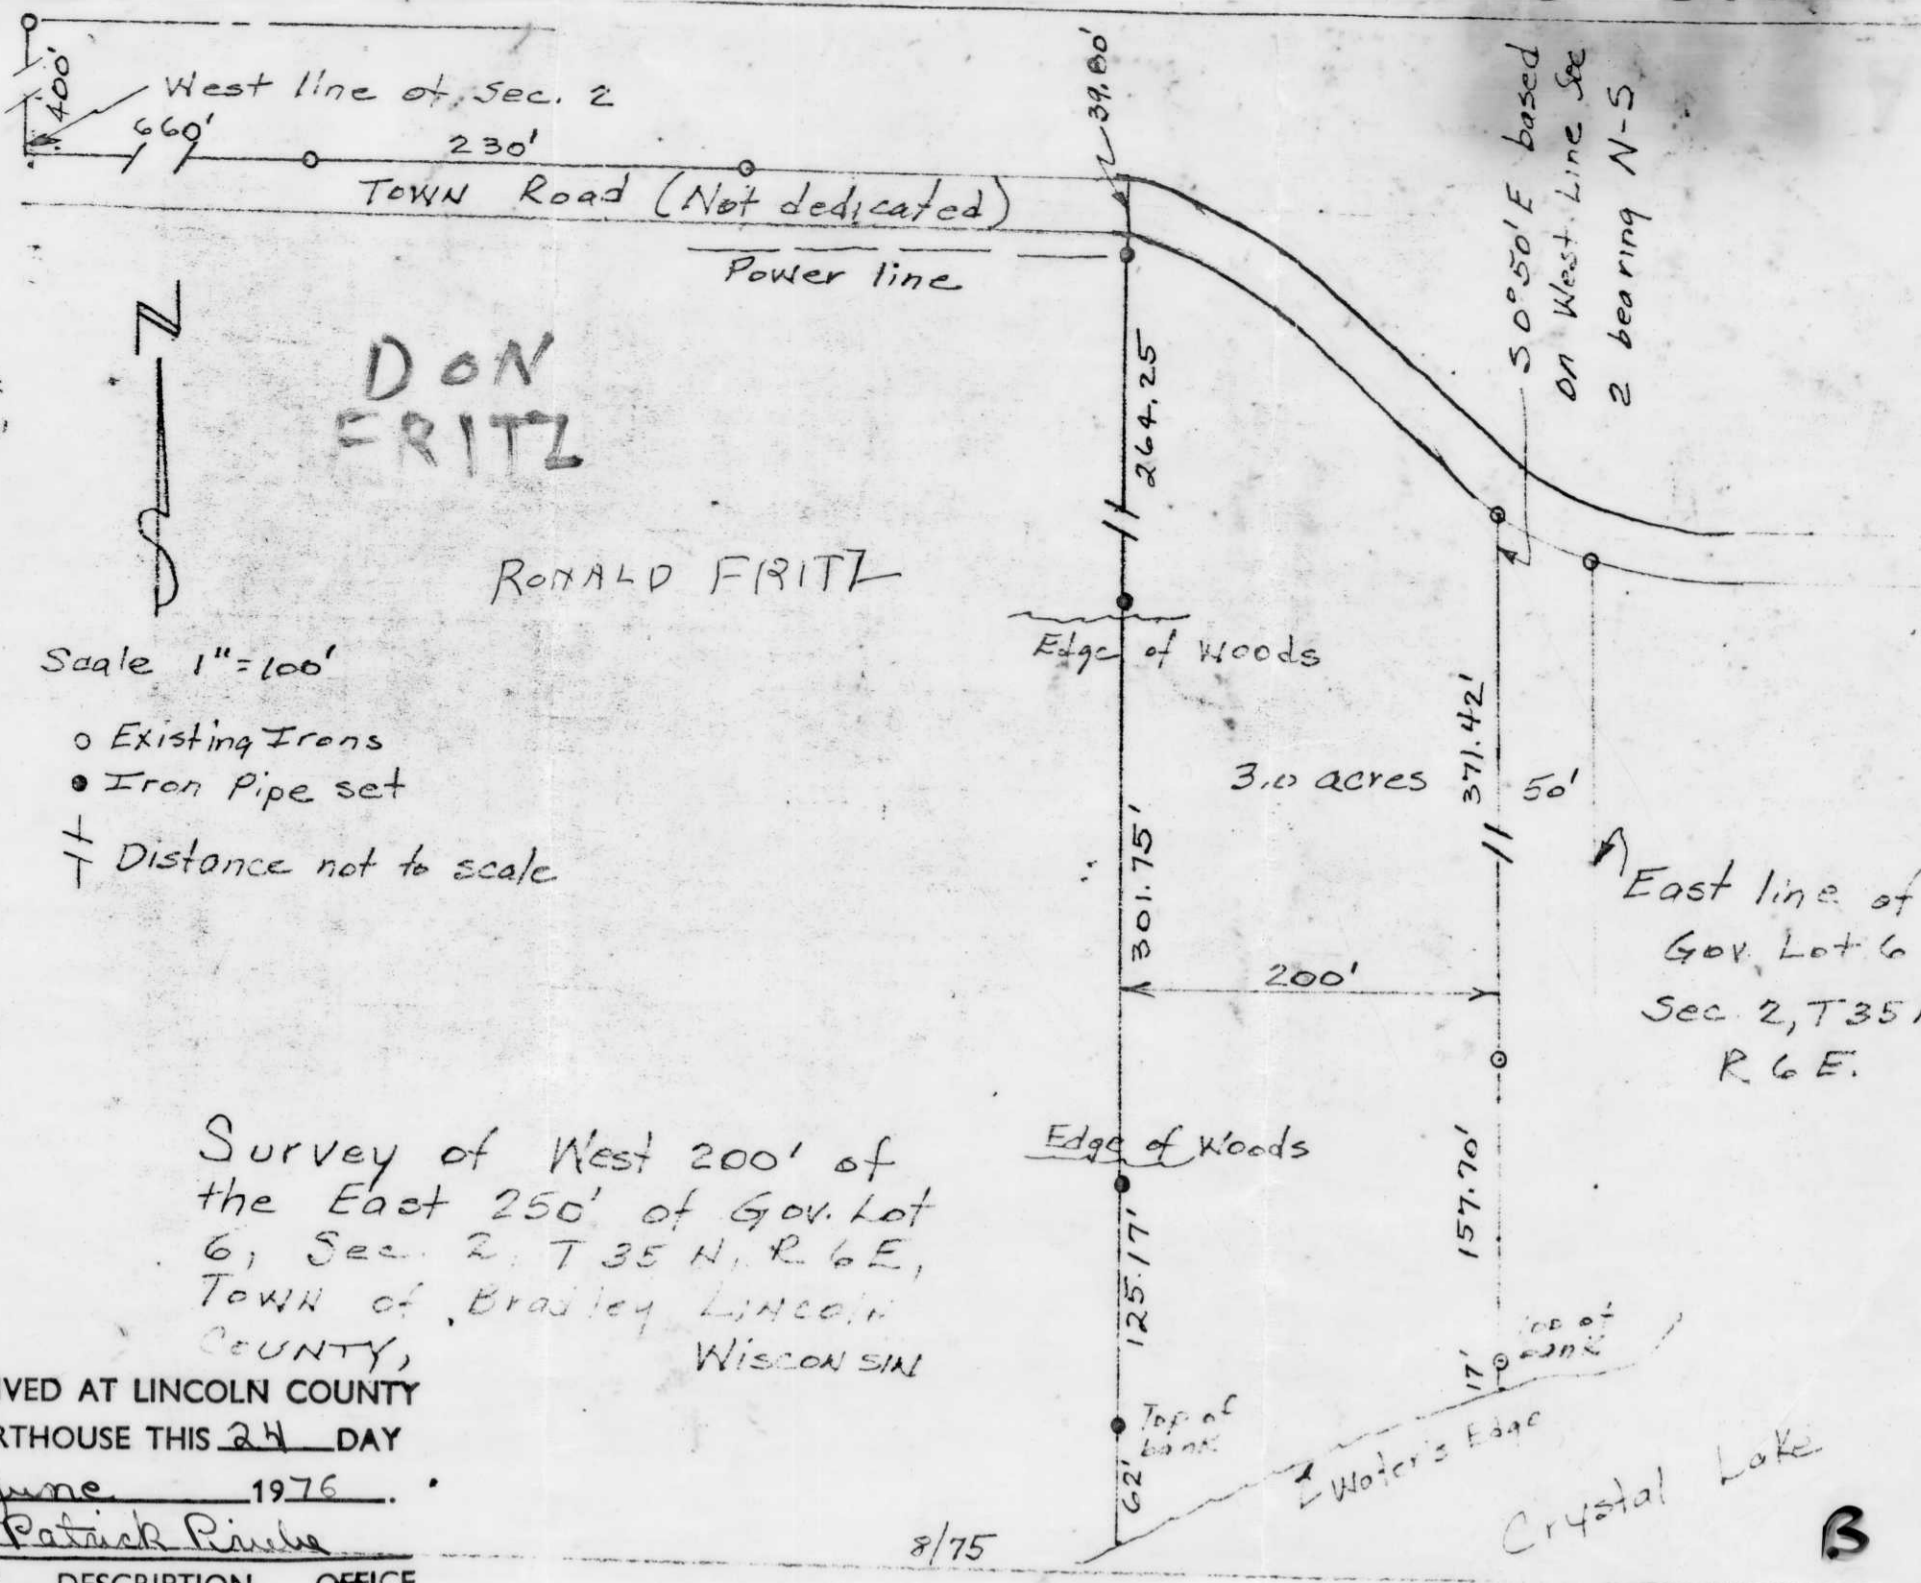 400'
West line of Sec. 2
660'
230'
39.80'
TOWN Road (Not dedicated)
Power line
S 0°50' E based
on West Line Sec
2 bearing N-S
N
S
DON
FRITZ
RONALD FRITZ
264.25
Edge of Woods
Scale 1"=100'
o Existing Irons
● Iron Pipe set
Distance not to scale
3.0 acres
371.42'
50'
301.75'
200'
East line of
Gov. Lot 6
Sec. 2, T35
R 6 E.
Edge of Woods
Survey of West 200' of
the East 250' of Gov. Lot
6, Sec. 2, T 35 N, R 6 E,
TOWN of Bradley LINCOLN
COUNTY,
WISCONSIN
125.17'
157.70'
17'
Top of
bank
Top of
bank
62'
Water's Edge
Crystal Lake
IVED AT LINCOLN COUNTY
RTHOUSE THIS 24 DAY
June 1976.
Patrick
DESCRIPTION OFFICE
8/75
B